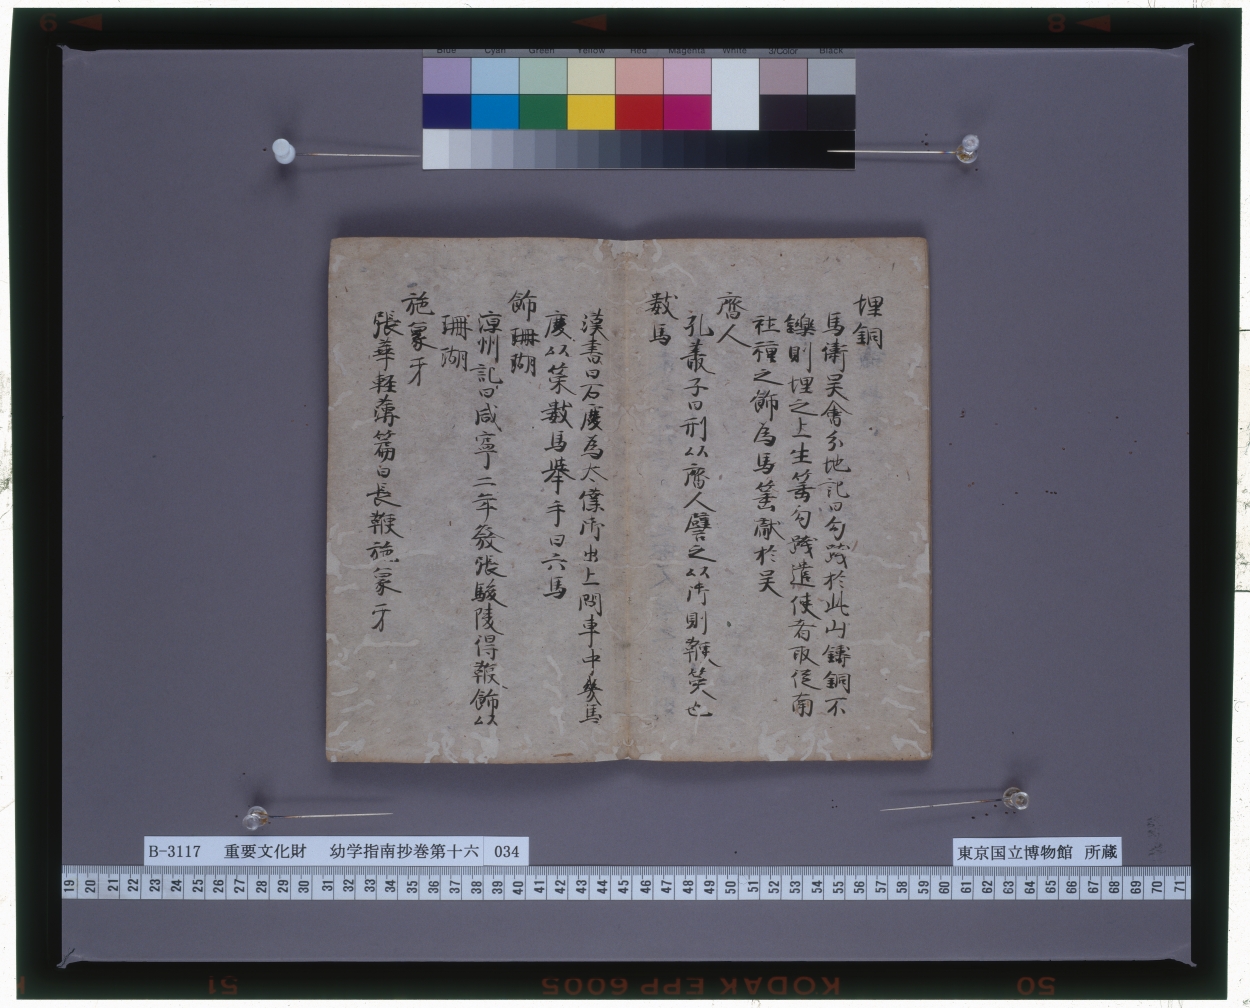 Blue Cyan Green Yellow Red Magenta White 3/Color Black
埋銅
馬衛呉會分地記曰勾践於此山鑄銅不
鑠則埋之上生箠勾践遣使者取従南
社種之飾為馬箠献於呉
齊人
孔叢子曰刑以齊人譬之以御則鞭筴也
数馬
漢書曰石慶為太僕御出上問車中幾馬
慶以策数馬挙手曰六馬
飾珊瑚
涼州記曰咸寧二年發張駿陵得鞭飾以
珊瑚
施象牙
張華軽薄篇曰長鞭施象牙
B-3117 重要文化財 幼学指南抄巻第十六 034
東京国立博物館 所蔵
19 20 21 22 23 24 25 26 27 28 29 30 31 32 33 34 35 36 37 38 39 40 41 42 43 44 45 46 47 48 49 50 51 52 53 54 55 56 57 58 59 60 61 62 63 64 65 66 67 68 69 70 71
51 KODAK EPP 6005 50